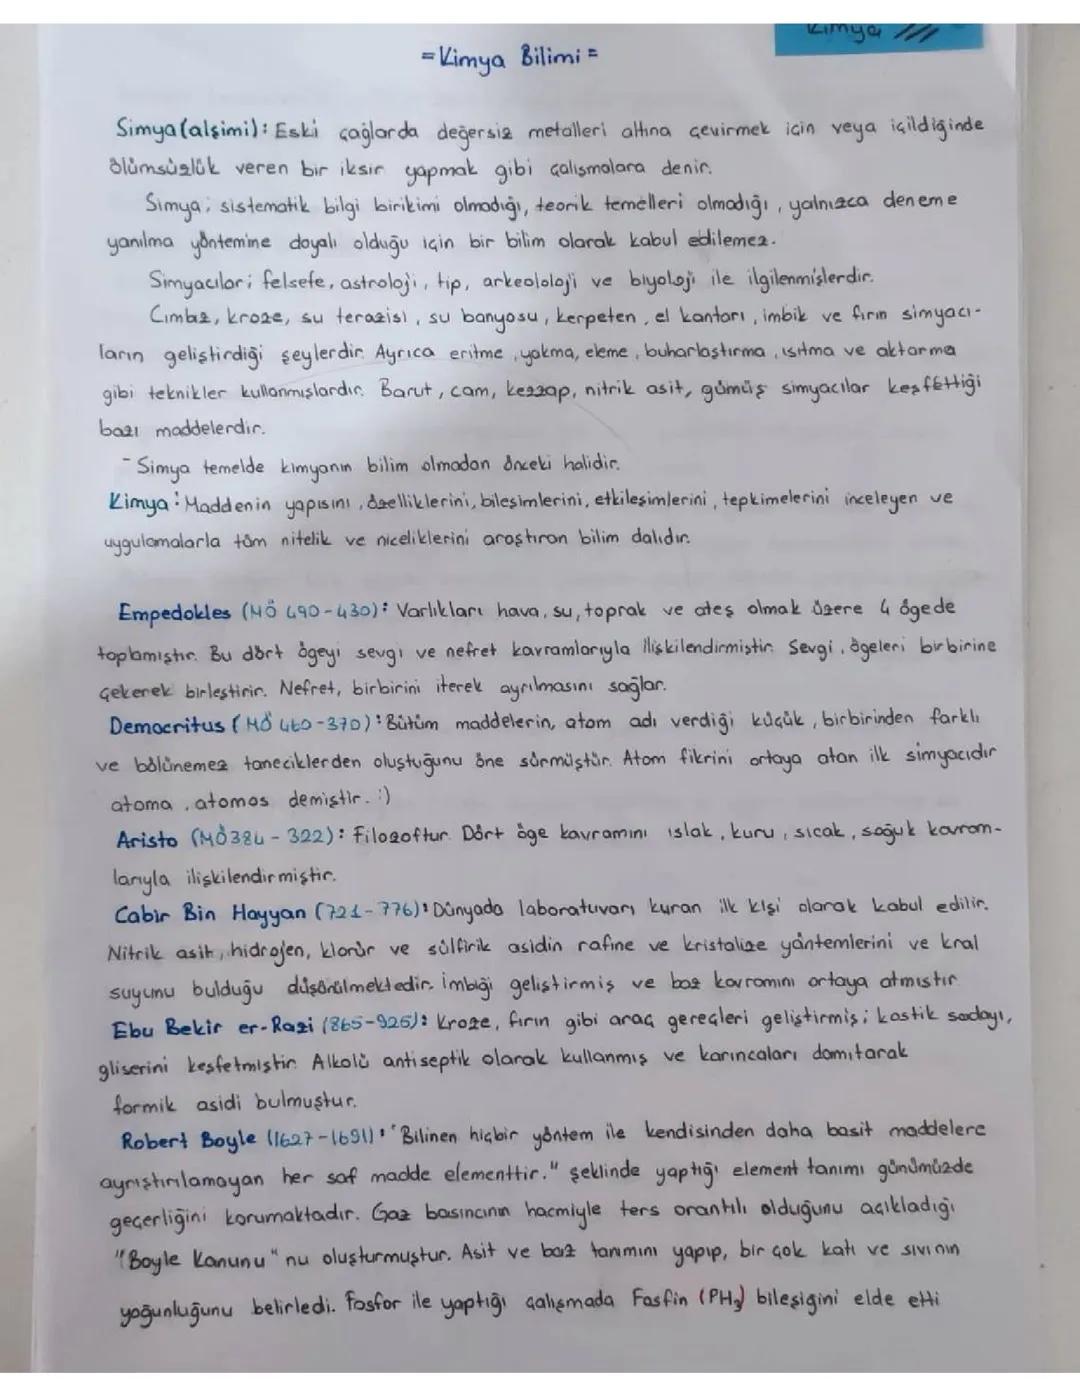 Kimya
= Kimya Bilimi =
Simya (alşimi): Eski çağlarda değersiz metalleri altına çevirmek için veya içildiğinde
ölümsüzlük veren bir iksir yapmak gibi çalışmalara denir.
Simya; sistematik bilgi birikimi olmadığı, teorik temelleri olmadığı, yalnızca deneme
yanılma yöntemine dayalı olduğu için bir bilim olarak kabul edilemez.
Simyacılar; felsefe, astroloji, tıp, arkeololoji ve biyoloji ile ilgilenmişlerdir.
Cımbız, kroze, su terazisi, su banyosu, kerpeten, el kantarı, imbik ve fırın simyacı-
ların geliştirdiği şeylerdir. Ayrıca eritme, yakma, eleme, buharlaştırma, ısıtma ve aktarma
gibi teknikler kullanmışlardır. Barut, cam, kezzap, nitrik asit, gümüş simyacılar keşfettiği
bazı maddelerdir.
- Simya temelde kimyanın bilim olmadan önceki halidir.
Kimya: Maddenin yapısını, özelliklerini, bileşimlerini, etkileşimlerini, tepkimelerini inceleyen ve
uygulamalarla tüm nitelik ve niceliklerini araştıran bilim dalıdır.
Empedokles (MÖ 490-430): Varlıkları hava, su, toprak ve ateş olmak üzere 4 ögede
toplamıştır. Bu dört ögeyi sevgi ve nefret kavramlarıyla ilişkilendirmiştir. Sevgi, ögeleri birbirine
çekerek birleştirir. Nefret, birbirini iterek ayrılmasını sağlar.
Democritus (MÖ 460-370): Bütüm maddelerin, atom adı verdiği küçük, birbirinden farklı
ve bölünemez taneciklerden oluştuğunu öne sürmüştür. Atom fikrini ortaya atan ilk simyacıdır
atoma, atomos demiştir. :)
Aristo (MÖ 384 - 322): Filozoftur. Dört öge kavramını ıslak, kuru, sıcak, soğuk kavram-
larıyla ilişkilendirmiştir.
Cabir Bin Hayyan (721-776): Dünyada laboratuvarı kuran ilk kişi olarak kabul edilir.
Nitrik asit, hidrojen, klorür ve sülfirik asidin rafine ve kristalize yöntemlerini ve kral
suyunu bulduğu düşünülmektedir. İmbiği geliştirmiş ve baz kavramını ortaya atmıştır
Ebu Bekir er-Razi (865-925): Kroze, fırın gibi araç gereçleri geliştirmiş; kostik sodayı,
gliserini keşfetmiştir. Alkolü antiseptik olarak kullanmış ve karıncaları damıtarak
formik asidi bulmuştur.
Robert Boyle (1627-1691): "Bilinen hiçbir yöntem ile kendisinden daha basit maddelere
ayrıştırılamayan her saf madde elementtir." şeklinde yaptığı element tanımı günümüzde
geçerliğini korumaktadır. Gaz basıncının hacmiyle ters orantılı olduğunu açıkladığı
"Boyle Kanunu" nu oluşturmuştur. Asit ve baz tanımını yapıp, bir çok katı ve sıvının
yoğunluğunu belirledi. Fosfor ile yaptığı çalışmada Fosfin (PH₃) bileşiğini elde etti